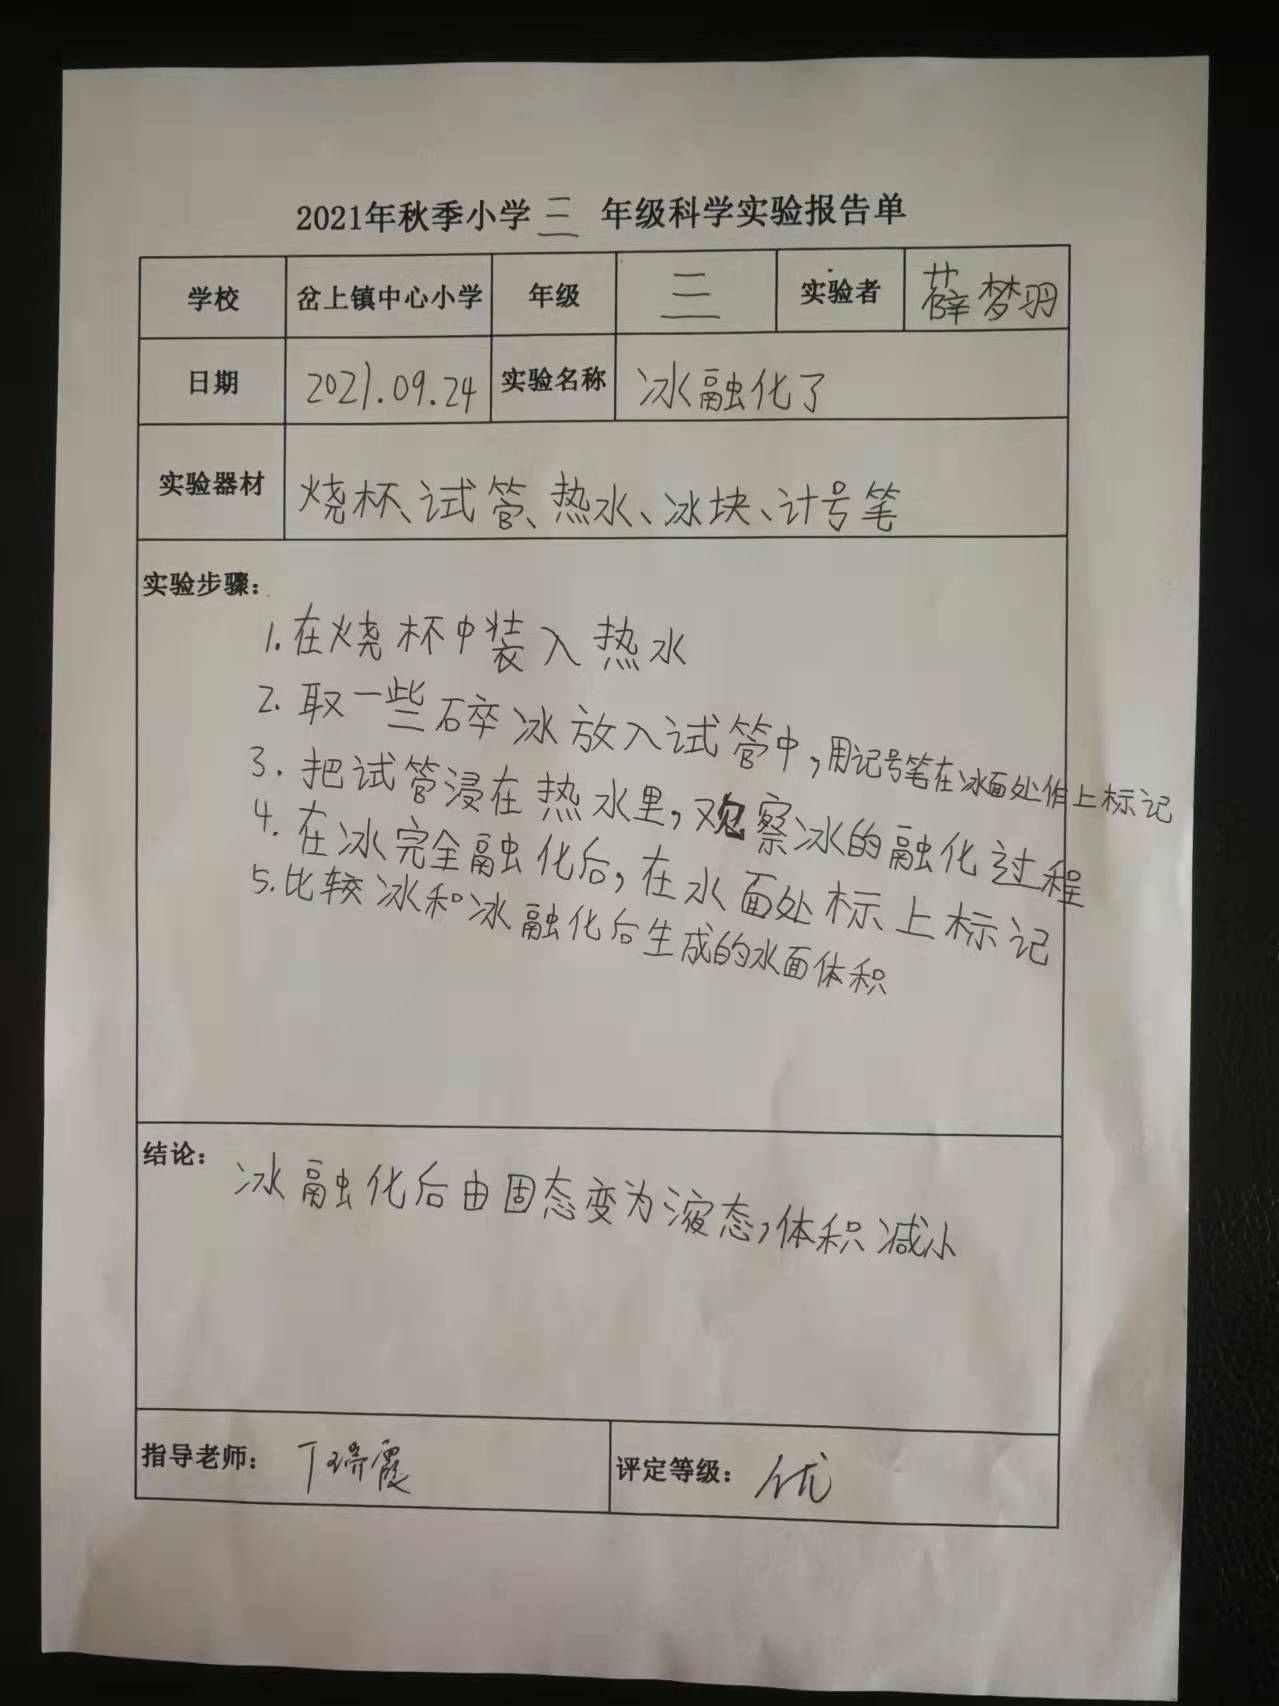 2021年秋季小学 三 年级科学实验报告单
学校 岔上镇中心小学 年级 三 实验者 薛梦羽
日期 2021.09.24 实验名称 冰融化了
实验器材 烧杯、试管、热水、冰块、计号笔
实验步骤：
1.在烧杯中装入热水
2.取一些碎冰放入试管中，用记号笔在冰面处作上标记
3.把试管浸在热水里，观察冰的融化过程
4.在冰完全融化后，在水面处标上标记
5.比较冰和冰融化后生成的水面体积
结论：
冰融化后由固态变为液态，体积减小
指导老师： 丁瑞霞 评定等级： 优